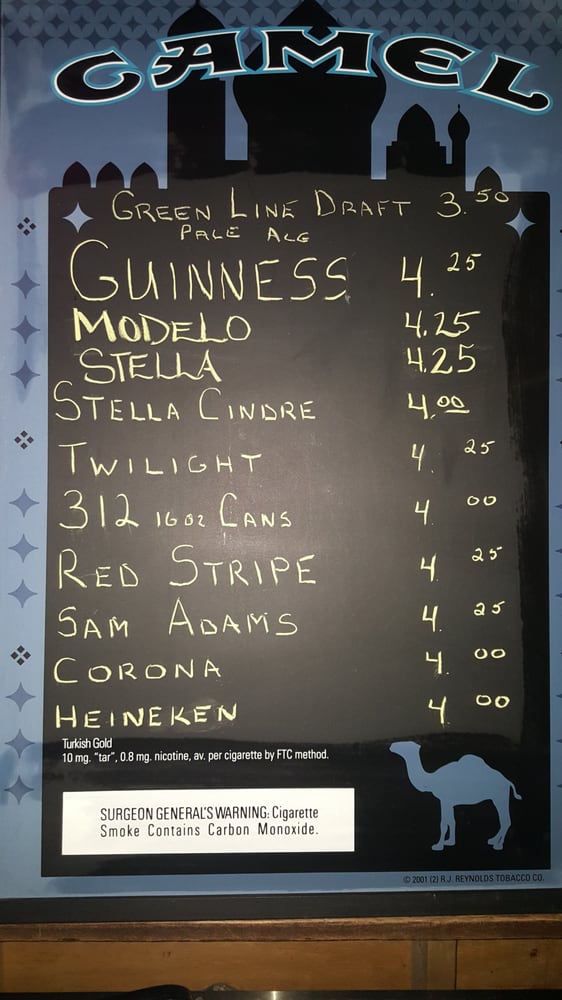 CAMEL
GREEN LINE DRAFT 3.50
PALE ALE
GUINNESS 4.25
MODELO 4.25
STELLA 4.25
STELLA CINDRE 4.00
TWILIGHT 4.25
312 16oz CANS 4.00
RED STRIPE 4.25
SAM ADAMS 4.25
CORONA 4.00
HEINEKEN 4.00
Turkish Gold
10 mg. "tar", 0.8 mg. nicotine, av. per cigarette by FTC method.
SURGEON GENERAL'S WARNING: Cigarette
Smoke Contains Carbon Monoxide.
© 2001 (2) R.J. REYNOLDS TOBACCO CO.